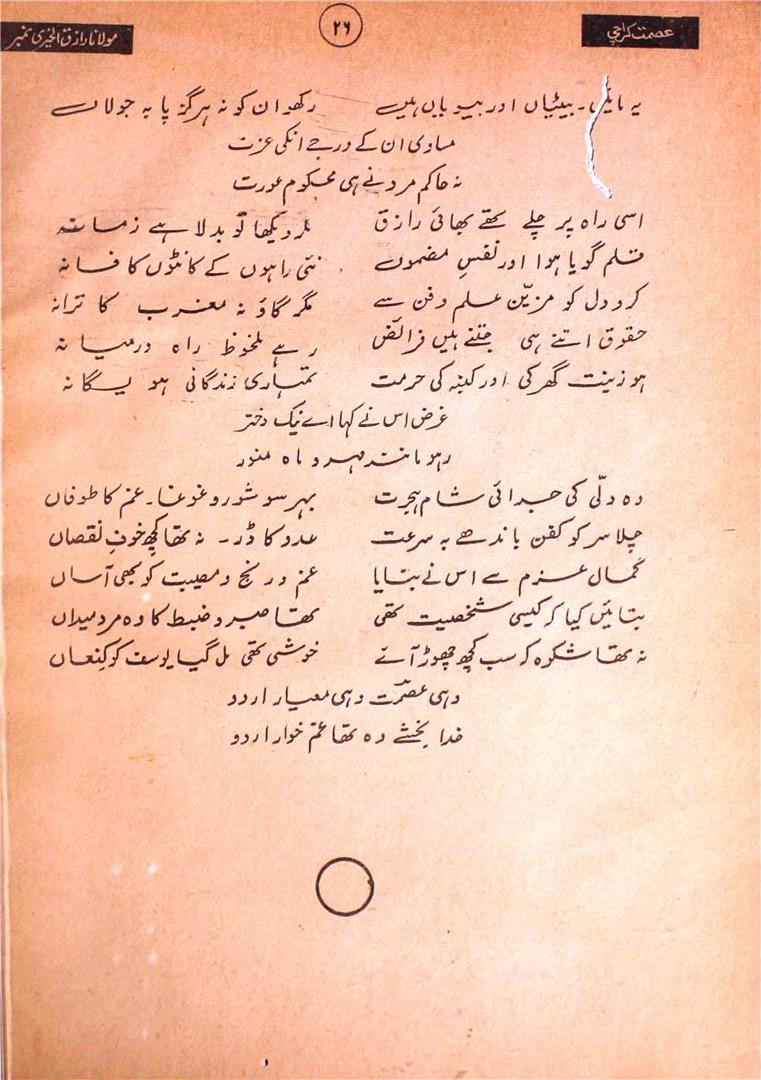 عصمت کراچی ۲۶ مولانا رازق الخیری نمبر
یہ مائیں۔ بیٹیاں اور بیویاں ہیں رکھو ان کو نہ ہرگز پا بہ جولاں
مساوی ان کے درجے انکی عزت
نہ حاکم مرد نے ہی محکوم عورت
اسی راہ پر چلے تھے بھائی رازق مگر دیکھا تو بدلا ہے زمانہ
قلم گویا ہوا اور نفسِ مضموں نئی راہوں کے کانٹوں کا فسانہ
کرو دل کو مزیّن علم و فن سے مگر گاؤ نہ مغرب کا ترانہ
حقوق اتنے ہی جتنے ہیں فرائض رہے ملحوظ راہ درمیانہ
ہو زینت گھر کی اور کنبہ کی حرمت تمہاری زندگانی ہو یگانہ
غرض اس نے کہا اے نیک دختر
رہو مانند مہر و ماہ منور
وہ دلّی کی جدائی شام ہجرت بہر سو شور و غوغا۔ غم کا طوفاں
چلا سر کو کفن باندھے بہ سرعت عدو کا ڈر۔ نہ تھا کچھ خوفِ نقصاں
کمال عزم سے اس نے بتایا غم و رنج و مصیبت کو بھی آساں
بتائیں کیا کہ کیسی شخصیت تھی تھا صبر و ضبط کا وہ مرد میداں
نہ تھا شکوہ کہ سب کچھ چھوڑ آئے خوشی تھی مل گیا یوسف کو کنعاں
وہی عصمت وہی معیار اردو
خدا بخشے وہ تھا غم خوار اردو